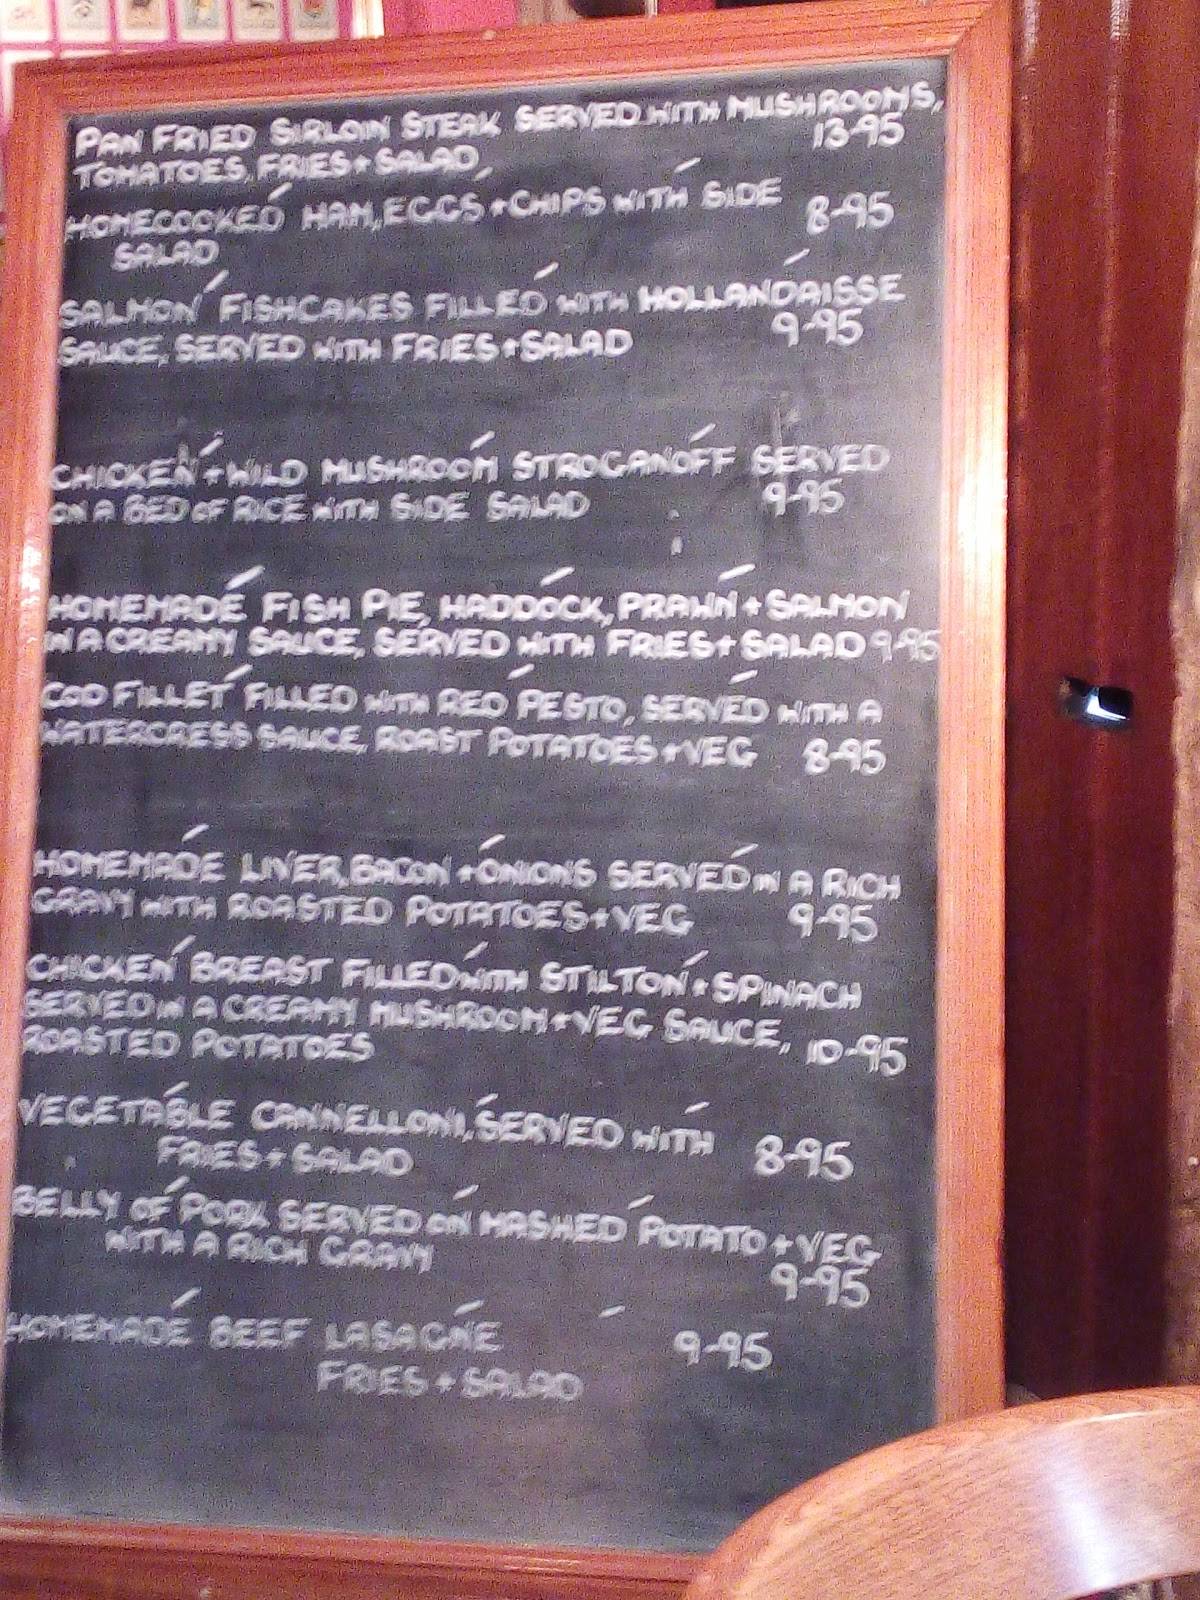 PAN FRIED SIRLOIN STEAK SERVED WITH MUSHROOMS,
TOMATOES, FRIES + SALAD, 13-95
HOMECOOKED HAM, EGGS + CHIPS WITH SIDE
SALAD 8-95
SALMON FISHCAKES FILLED WITH HOLLANDAISSE
SAUCE, SERVED WITH FRIES + SALAD 9-95
CHICKEN + WILD MUSHROOM STROGANOFF SERVED
ON A BED OF RICE WITH SIDE SALAD 9-95
HOMEMADE FISH PIE, HADDOCK, PRAWN + SALMON
IN A CREAMY SAUCE, SERVED WITH FRIES + SALAD 9-95
COD FILLET FILLED WITH RED PESTO, SERVED WITH A
WATERCRESS SAUCE, ROAST POTATOES + VEG 8-95
HOMEMADE LIVER, BACON + ONIONS SERVED IN A RICH
GRAVY WITH ROASTED POTATOES + VEG 9-95
CHICKEN BREAST FILLED WITH STILTON + SPINACH
SERVED IN A CREAMY MUSHROOM + VEG SAUCE,
ROASTED POTATOES 10-95
VEGETABLE CANNELLONI, SERVED WITH
FRIES + SALAD 8-95
BELLY OF PORK SERVED ON MASHED POTATO + VEG
WITH A RICH GRAVY 9-95
HOMEMADE BEEF LASAGNE 9-95
FRIES + SALAD